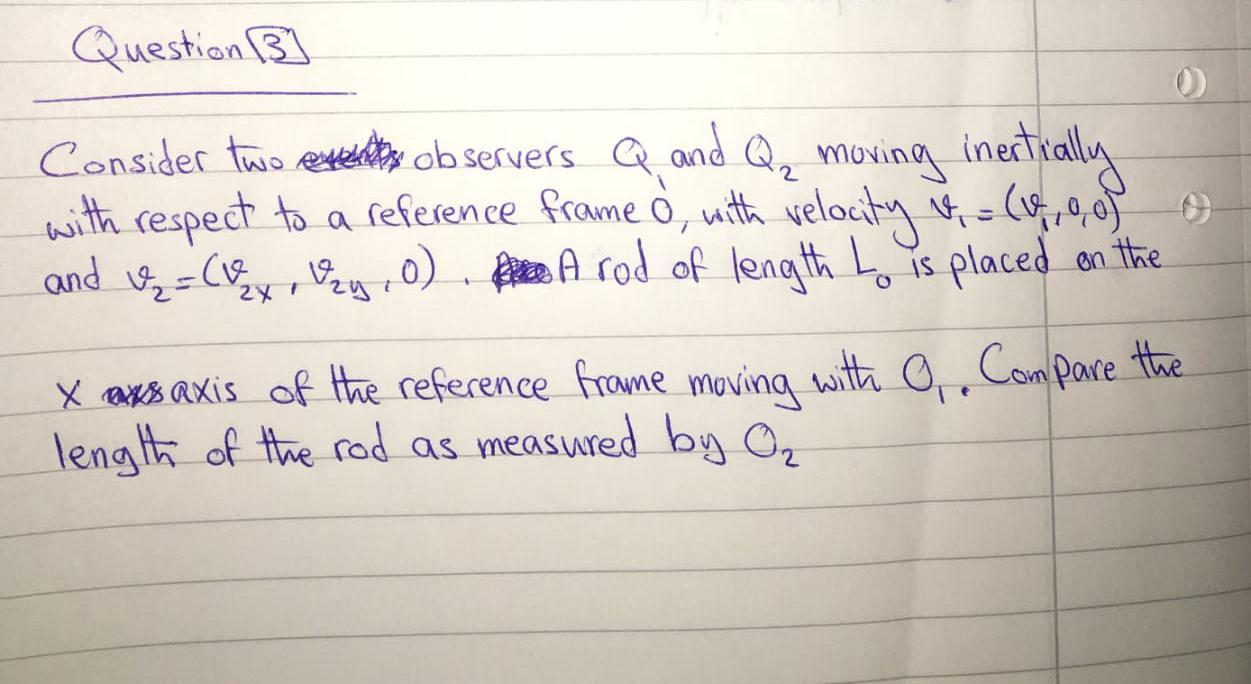 Question [3]
Consider two observers O₁ and O₂ moving inertially
with respect to a reference frame O, with velocity v₁ = (v₁, 0, 0)
and v₂ = (v₂ₓ, v₂y, 0). A rod of length L₀ is placed on the
x axis of the reference frame moving with O₁. Compare the
length of the rod as measured by O₂